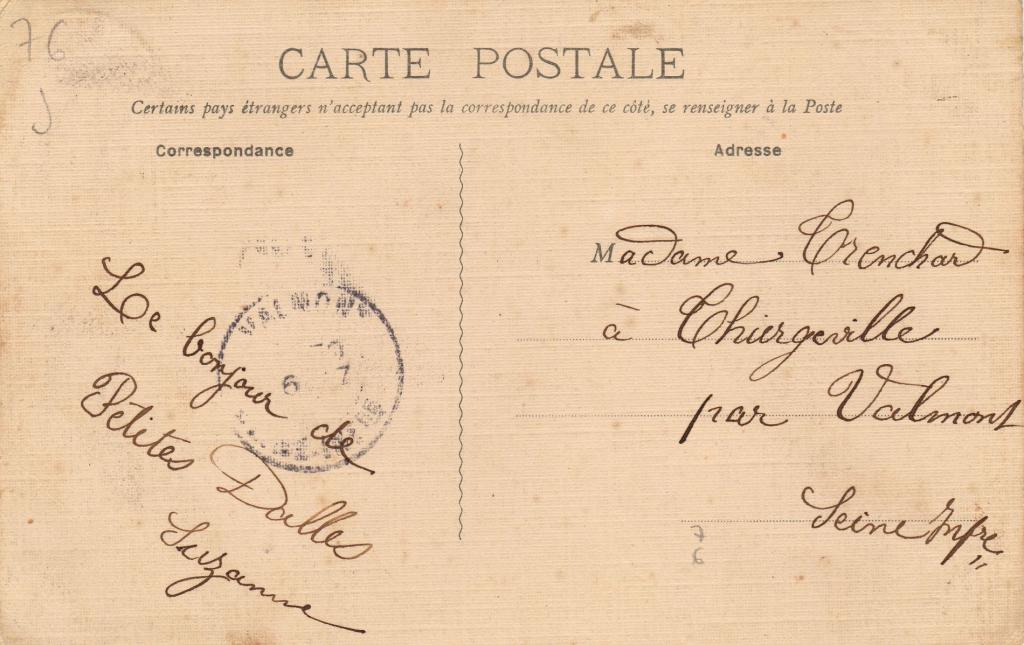 76
J
CARTE POSTALE
Certains pays étrangers n'acceptant pas la correspondance de ce côté, se renseigner à la Poste
Correspondance
Le bonjour de
Petites Dalles
Suzanne
VALMONT
6 7
Adresse
Madame Trenchard
à Thiergeville
par Valmont
Seine Infre
76